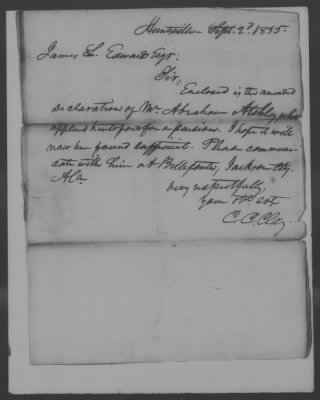 Huntsville Sept. 2d. 1835.
James L. Edwards Esqr.
Sir,
Enclosed is the amended
declaration of Mr. Abraham who
applied heretofore for a pension. I hope it will
now be found sufficient. Please communi-
cate with him at Bellefonte, Jackson Cty.
Ala.
very respectfully,
your obt. svt.
C. C. Clay.